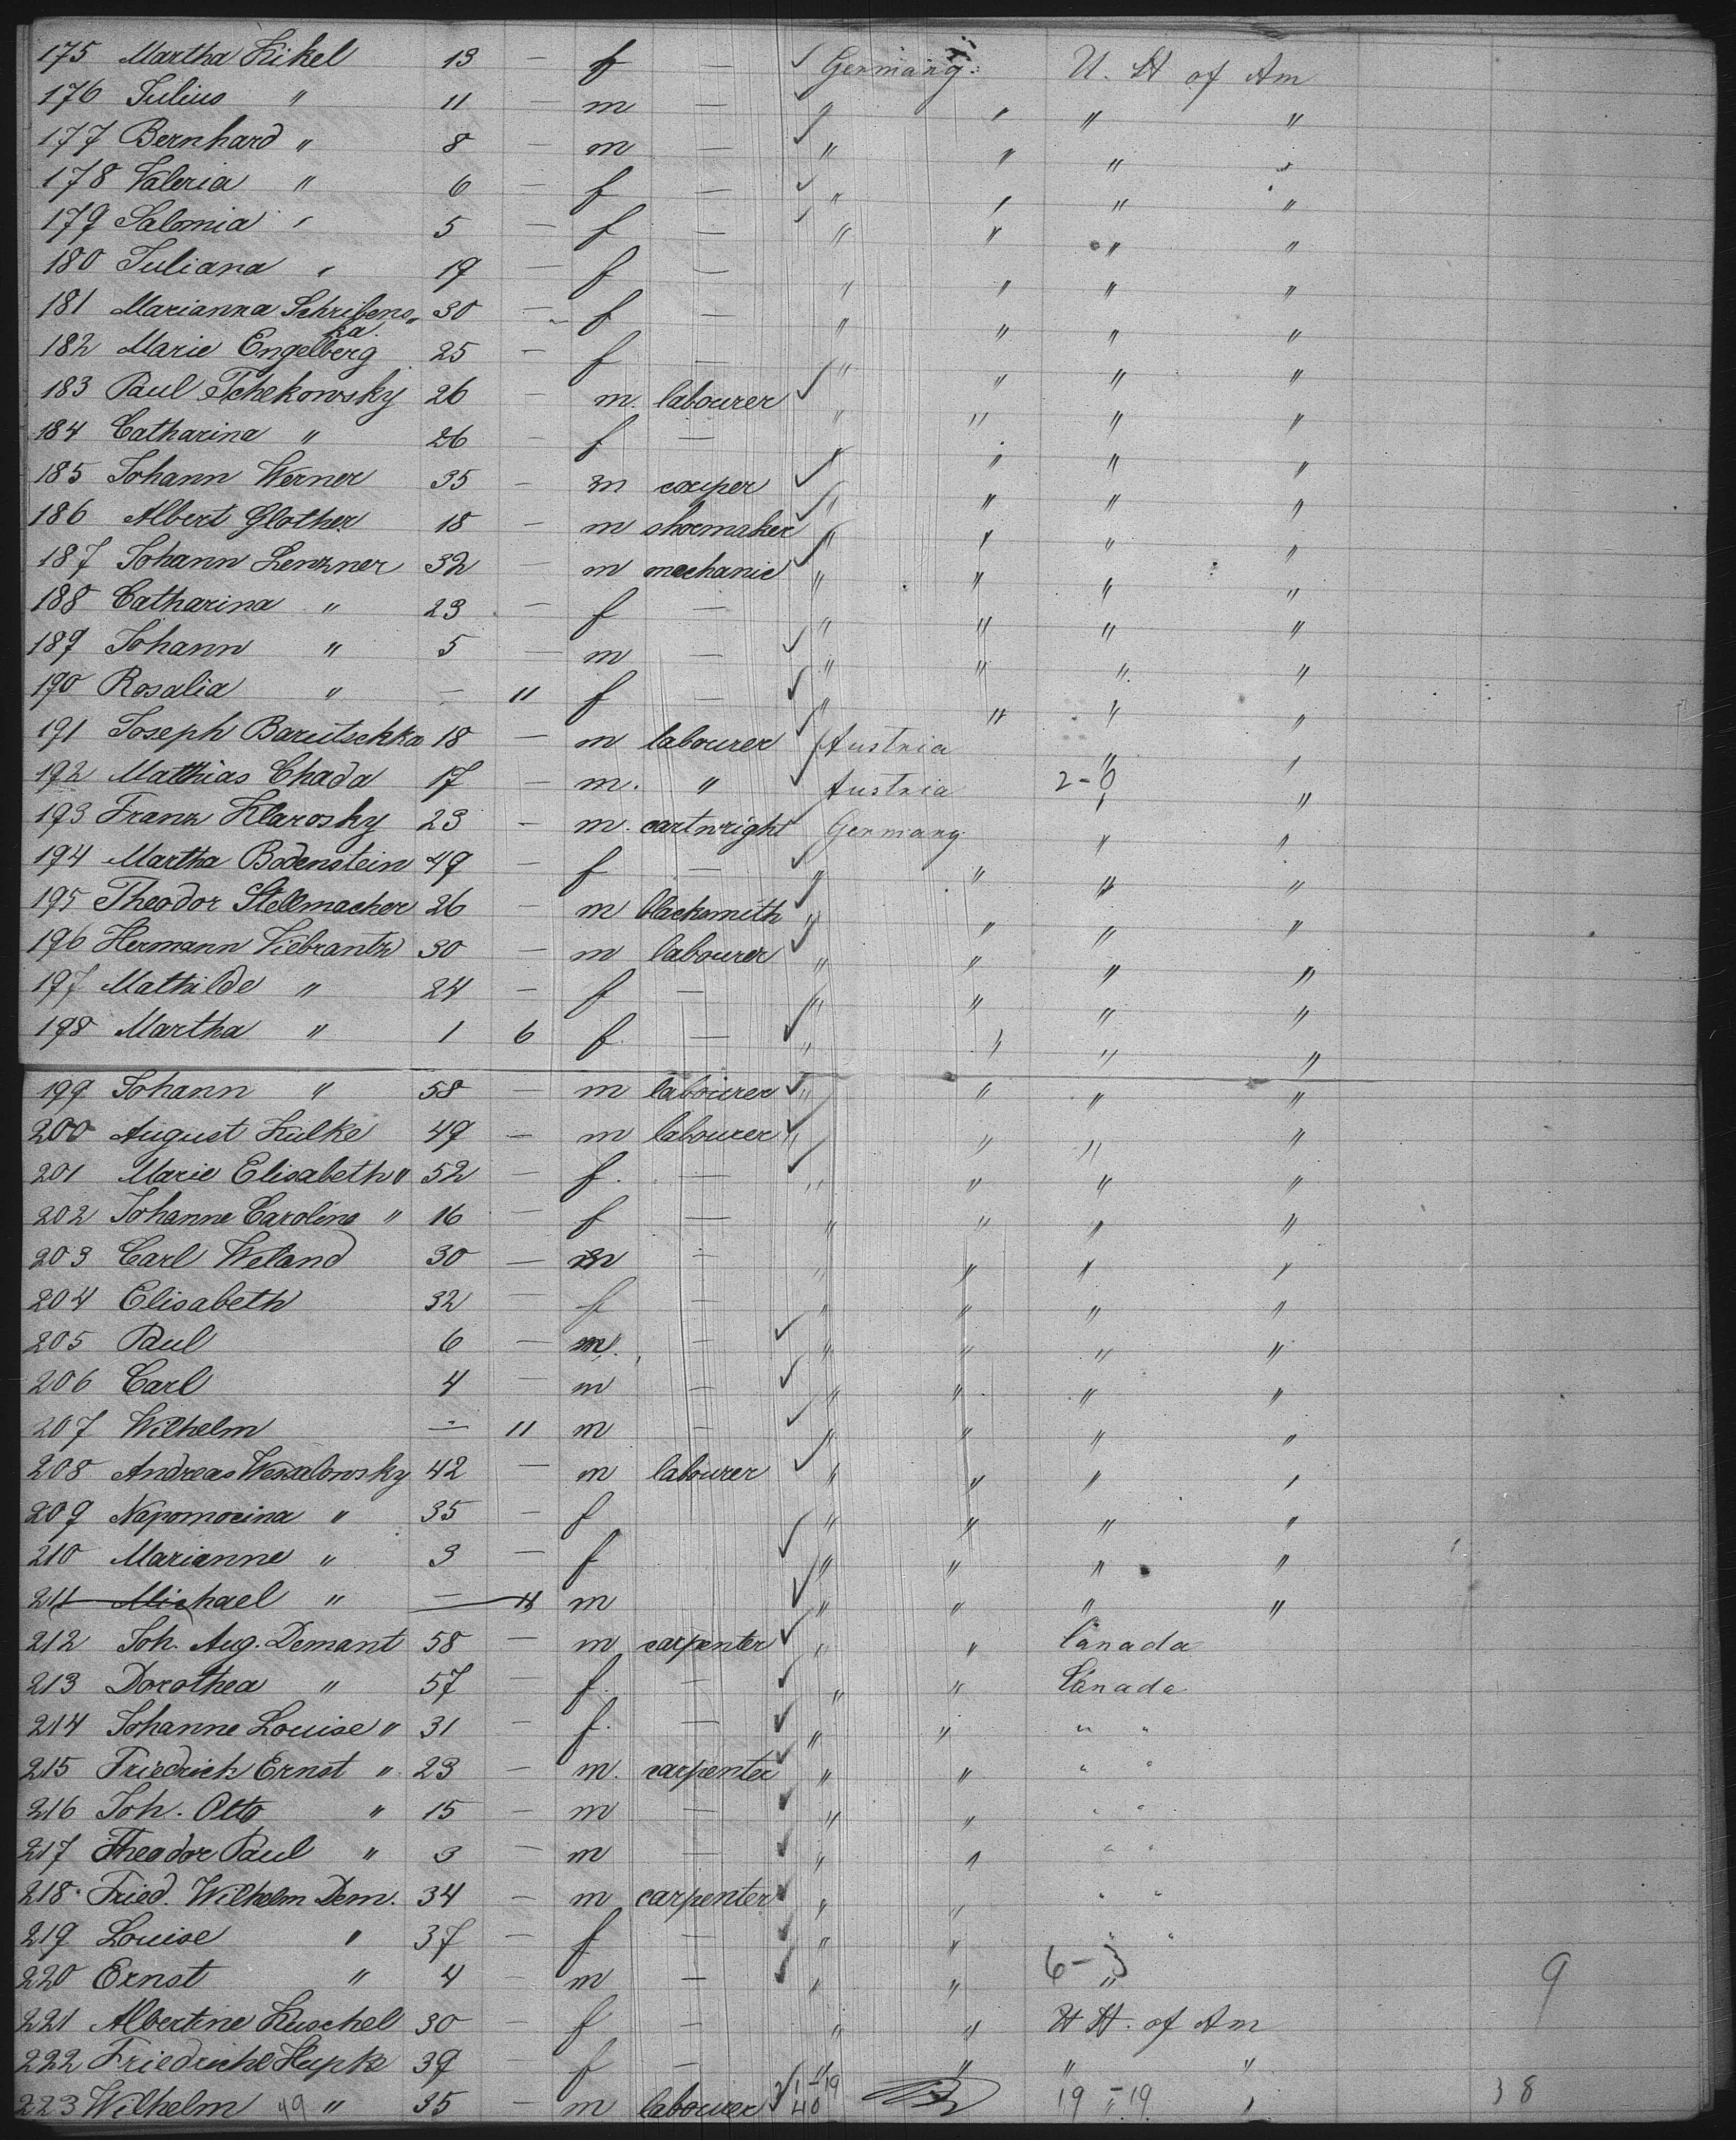 175 Martha Kikel 13 — f — ✓ Germany U. St of Am
176 Julius " 11 — m — ✓ " " " "
177 Bernhard " 8 — m — ✓ " " " "
178 Valeria " 6 — f — ✓ " " " "
179 Salomia " 5 — f — ✓ " " " "
180 Juliana " 19 — f — " " " "
181 Marianna 30 — f — " " " "
182 Marie Engelberg 25 — f — " " " "
183 Paul Tchekowsky 26 — m. labourer ✓ " " " "
184 Catharina " 26 — f — " " " "
185 Johann Werner 35 — m cooper ✓ " " " "
186 Albert Glother 18 — m shoemaker ✓ " " " "
187 Johann Lenzner 32 — m mechanic ✓ " " " "
188 Catharina " 23 — f — " " " "
189 Johann " 5 — m — ✓ " " " "
190 Rosalia " — 11 f — ✓ " " " "
191 Joseph Barutschka 18 — m labourer ✓ Austria " "
192 Matthias Chada 17 — m. " ✓ Austria 2-0 " "
193 Franz Klarosky 23 — m. cartwright ✓ Germany " "
194 Martha Bodenstein 49 — f — ✓ " " " "
195 Theodor Stellmacher 26 — m blacksmith ✓ " " " "
196 Hermann Viebrantz 30 — m labourer ✓ " " " "
197 Mathilde " 24 — f — " " " "
198 Martha " 1 6 f. — ✓ " " " "
199 Johann " 58 — m labourer ✓ " " " "
200 August Kulke 49 — m labourer ✓ " " " "
201 Marie Elisabeth " 52 — f. — ✓ " " " "
202 Johanne Caroline " 16 — f — " " " "
203 Carl Weland 30 — m — " " " "
204 Elisabeth 32 — f — " " " "
205 Paul 6 — m. — ✓ " " " "
206 Carl 4 — m — ✓ " " " "
207 Wilhelm — 11 m — ✓ " " " "
208 Andreas 42 — m labourer ✓ " " " "
209 " 35 — f " " " "
210 Marianne " 3 — f ✓ " " " "
211 Michael " — 11 m ✓ " " " "
212 Joh. Aug. Demant 58 — m carpenter ✓ " " Canada
213 Dorothea " 57 — f. — ✓ " " Canada
214 Johanne Louise " 31 — f. — ✓ " " " "
215 Friedrich Ernst " 23 — m. carpenter ✓ " " " "
216 Joh. Otto " 15 — m — ✓ " " " "
217 Theodor Paul " 3 — m — ✓ " " " "
218 Fried. Wilhelm Dem. 34 — m carpenter ✓ " " " "
219 Louise " 37 — f — ✓ " " " "
220 Ernst " 4 — m — ✓ " " 6-3 " 9
221 Albertine Kuschel 30 — f — " " U St. of Am
222 Friedrich Hupke 39 — f — " " " "
223 Wilhelm 49 " 35 — m labourer ✓ 1-19 40 19-19 " " 38